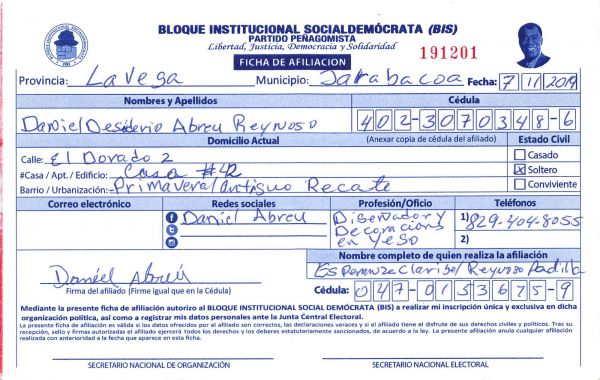 BLOQUE INSTITUCIONAL SOCIALDEMÓCRATA (BIS)
PARTIDO PEÑAGOMISTA
Libertad, Justicia, Democracia y Solidaridad
191201
FICHA DE AFILIACION
Provincia: La Vega Municipio: Jarabacoa Fecha: 7/11/2019
Nombres y Apellidos Cédula
Daniel Desiderio Abreu Reynoso 402-3070348-6
Domicilio Actual (Anexar copia de cédula del afiliado) Estado Civil
Calle: El Dorado 2 Casado
#Casa / Apt. / Edificio: Casa #42 X Soltero
Barrio / Urbanización: Primaveral antiguo Recate Conviviente
Correo electrónico Redes sociales Profesión/Oficio Teléfonos
Daniel Abreu Diseñador y 1) 829-404-8055
Decoracions 2)
en yeso
Nombre completo de quien realiza la afiliación
Esperanza Claribel Reynoso Padilla
Daniel Abreu
Firma del afiliado (Firme igual que en la Cédula) Cédula: 047-0153675-9
Mediante la presente ficha de afiliación autorizo al BLOQUE INSTITUCIONAL SOCIAL DEMÓCRATA (BIS) a realizar mi inscripción única y exclusiva en dicha
organización política, así como a registrar mis datos personales ante la Junta Central Electoral.
La presente ficha de afiliación es válida si los datos ofrecidos por el afiliado son correctos, las declaraciones veraces y si el afiliado tiene el disfrute de sus derechos civiles y políticos. Tras su
recepción, sello y firmas autorizadas el afiliado ejercerá todos los derechos y los deberes estatutariamente sancionados, de acuerdo a la ley. La presente afiliación anula cualquier afiliación
realizada con anterioridad a la fecha que aparece en esta ficha.
SECRETARIO NACIONAL DE ORGANIZACIÓN SECRETARIO NACIONAL ELECTORAL